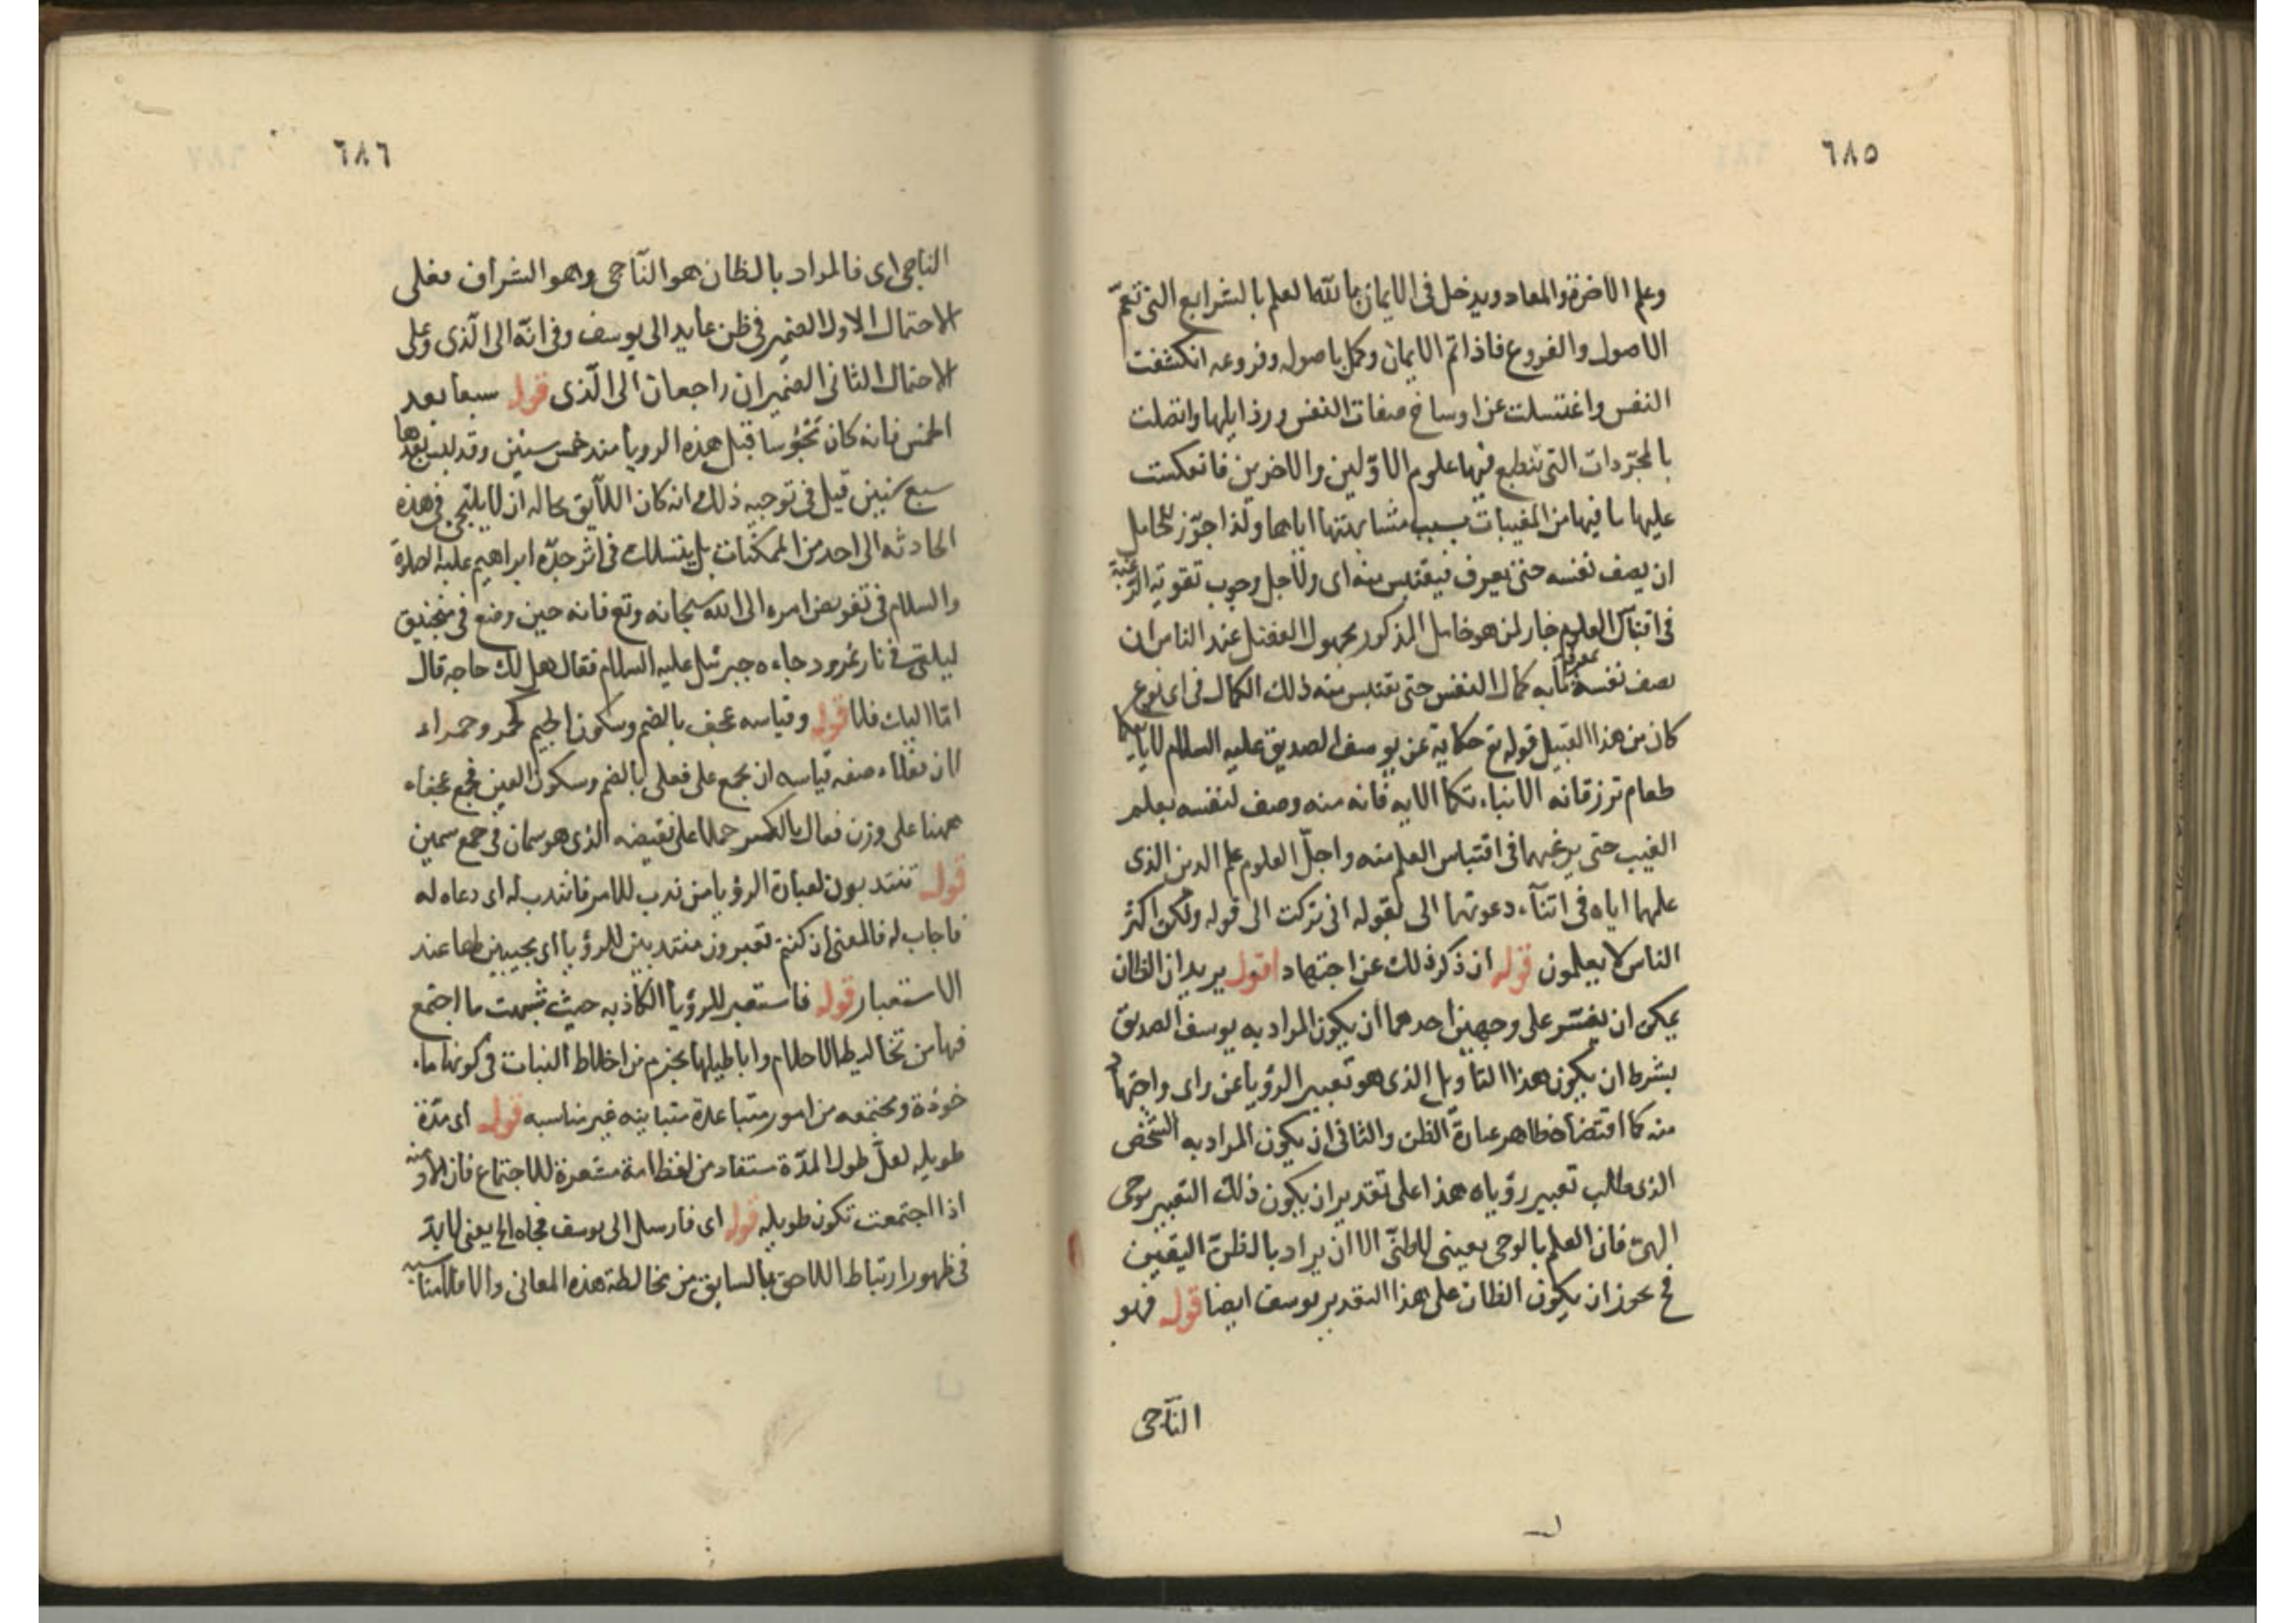 ٦٨٥
وعلم الاخرة والمعاد ويدخل فى الايمان بالله العلم بالشرايع التى تعمّ
الاصول والفروع فاذا تم الايمان وكمل باصوله وفروعه انكشفت
النفس واغتسلت عن اوساخ صفات النفس ورذايلها واتصلت
بالمجرّدات التى تنطبع فيها علوم الاوّلين والاخرين فانعكست
عليها ما فيها من المغيبات بسبب مشابهتها اياها ولذا جوّز للخامل
ان يصف نفسه حتى يعرف فيقتبس منه اى ولاجل وجوب تقوية الرّغبة
فى العلوم جاز لمن هو خامل المذكور مجهول الفضل عند الناس ان
يصف نفسه بما به كمال النفس حتى يقتبس منه ذلك الكمال فى اى نوع
كان من هذا القبيل قوله تع حكاية عن يوسف الصديق عليه السلام لا ياتيكما
طعام ترزقانه الا نباتكما الايه فانه منه وصف لنفسه بعلم
الغيب حتى يرغبهما فى اقتباس العلم منه واجلّ العلوم علم الدين الذى
علمهما اياه فى اثنآء دعوتهما الى بقوله انى تركت الى قوله ولكن اكثر
الناس لا يعلمون قوله ان ذكر ذلك عن اجتهاد اقول يريد ان الظان
يمكن ان يفسّر على وجهين احدهما ان يكون المراد به يوسف الصديق
بشرط ان يكون هذا التاويل الذى هو تعبير الرؤيا عن راى واجتهاد
منه كما اقتضاه ظاهر عبارة الظن والثانى ان يكون المراد به الشخص
الذى طالب تعبير رؤياه هذا على تقدير ان يكون ذلك التعبير بوحى
الهىّ فان العلم بالوحى يعينى لا ظنّى الا ان يراد بالظن اليقين
فح يجوز ان يكون الظان على هذا التقدير يوسف ايضا قوله فهو
الناجى
٦٨٦
الناجى اى فالمراد بالظان هو النّاجى وهو الشرابى فعلى
الاحتمال الاول الضمير فى ظن عايد الى يوسف وفى انّه الى الّذى وعلى
الاحتمال الثانى الضميران راجعان الى الّذى قوله سبعا بعد
الخمس فانه كان محبوسا قبل هذه الرويا منذ خمس سنين وقد لبس بعدها
سبع سنين قيل فى توجيه ذلك انه كان اللآيق بحاله ان لا يلتجى فى هذه
الحادثه الى احد من الممكنات بل ينسلك فى اثر جدّه ابراهيم عليه الصلوة
والسلام فى تفويض امره الى الله سبحانه وتع فانه حين وضع فى منجنيق
ليلقى فى نار نمرود جاءه جبرئيل عليه السلام فقال هل لك حاجه قال
امّا اليك فلا قوله وقياسه عجف بالضم وسكون الجيم كحمر وحمراء
لان فعلاء صفه قياسه ان يجمع على فعل بالضم وسكون العين فجمع عجفاء
ههنا على وزن فعال بالكسر حملا على نقيضه الذى هو سمان فى جمع سمين
قوله تنتدبون لعبارة الرؤيا من ندب للامر فانتدب له اى دعاه له
فاجاب له فالمعنى ان كنتم تعبرون منتدبين للرؤيا اى مجيبين لها عند
الاستعبار قوله فاستعير للرؤيا الكاذبه حيث شبهت ما اجتمع
فيها من تخاليط الاحلام واباطيلها بحزم من اخلاط النبات فى كونها ما
خوذة ومجتمعه من امور متباعدة متباينه غير مناسبه قوله اى مدّة
طويله لعلّ طول المدّة ستفاد من لفظ امة مشعرة للاجتماع فان الازمنه
اذا اجتمعت تكون طويله قوله اى فارسل الى يوسف فجاه الخ يعنى لابدّ
فى ظهور ارتباط اللاحق بالسابق من مخالطة هذه المعانى والا فلا مناسبه